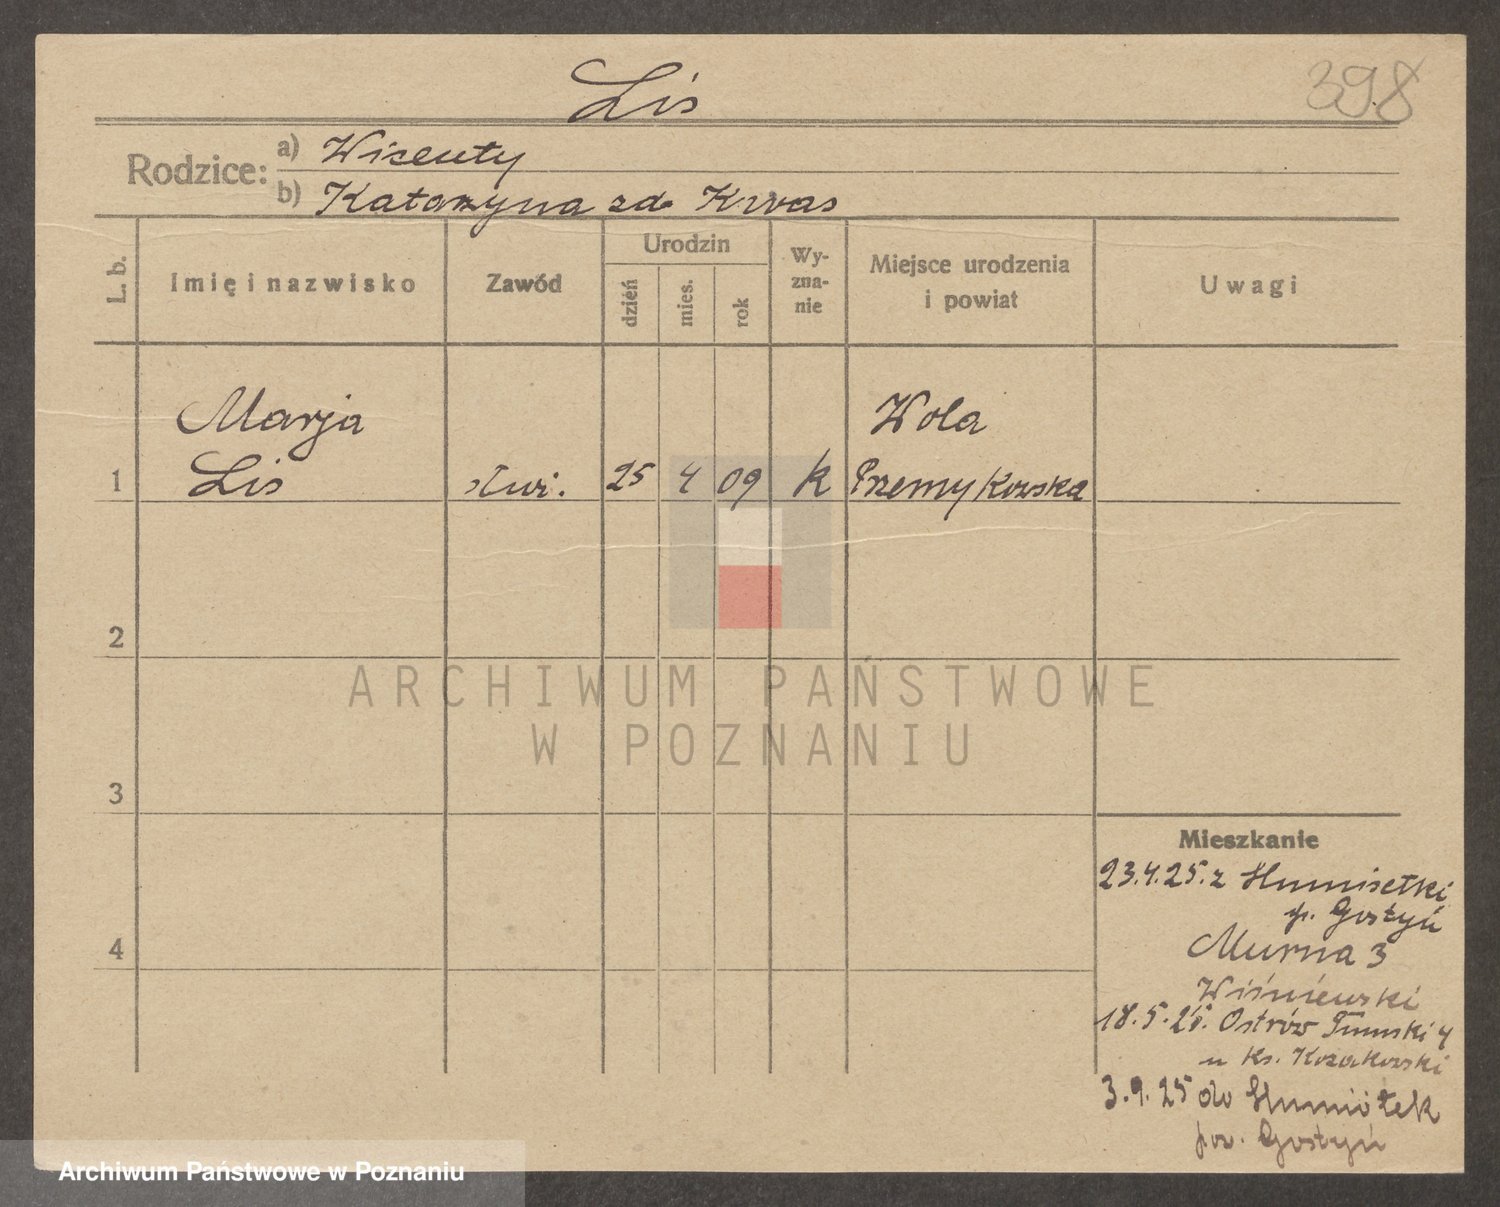 Lis
398
Rodzice: a) Wicenty
b) Katarzyna zd Kwas
L. b.
Imię i nazwisko
Zawód
Urodzin
dzień
mies.
rok
Wy-
zna-
nie
Miejsce urodzenia
i powiat
Uwagi
Marja
Wola
1 Lis służ. 25 4 09 k Przemykowska
2
3
4
Mieszkanie
23.4.25. z
p. Gostyń
Murna 3
Wiśniewski
18.5.25. Ostrów Tumski 4
u ks. Kozakowski
3.9.25 do
pow. Gostyń
ARCHIWUM PAŃSTWOWE
W POZNANIU
Archiwum Państwowe w Poznaniu